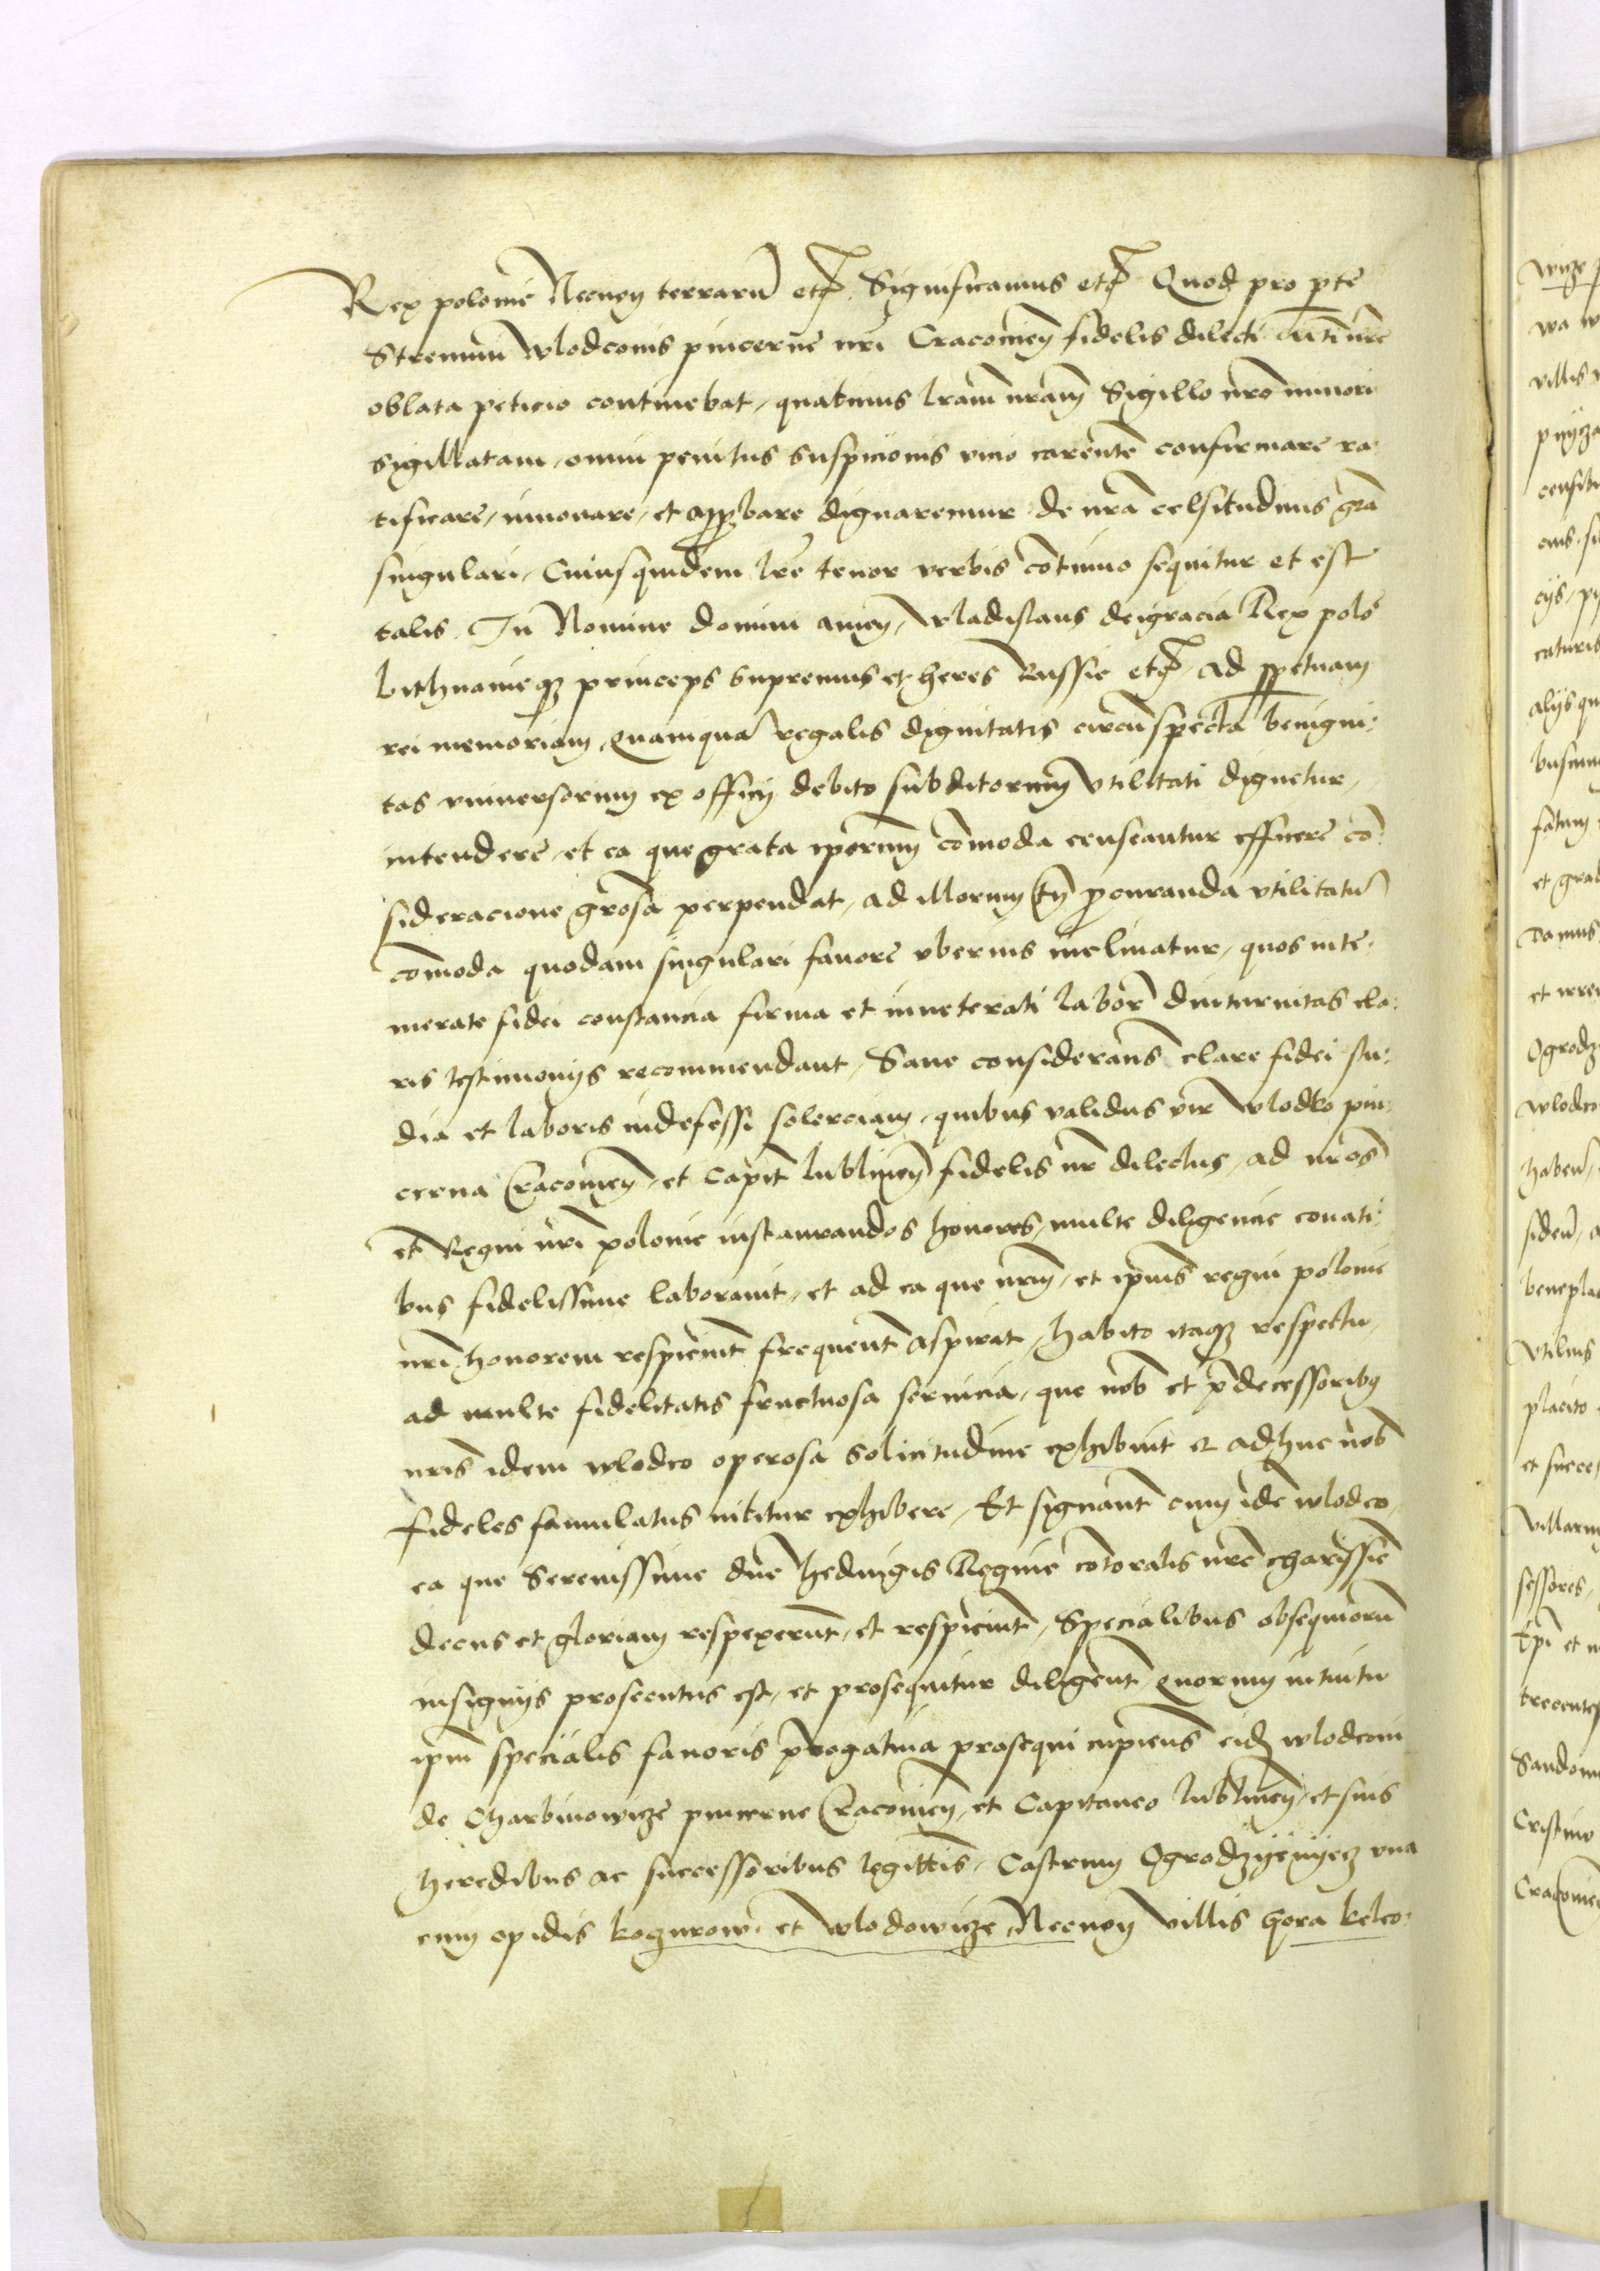 Rex polonie Necnon terrarũ etc̃ Significamus etc̃ Quod pro p̱te
Strenuui Wlodconis pincerne nr̃i Cracouien̄ fidelis dilecti
oblata peticio continebat, quatinus lr̃am nr̃am Sigillo nr̃o minori
sigillatam, omni penitus suspicionis vicio carente confirmare ra-
tificare, innouare, et app̱bare dignaremur de nr̃a celsitudinis gr̃a
singulari, Cuiusquidem lr̃e tenor verbis cōtinuo sequitur et est
talis. In Nomine domini amen, Wladislaus deigracia Rex polō
lithuanieqꝫ princeps supremus et heres Russie etc̃ ad p̱petuam
rei memoriam, Quamquã regalis dignitatis circūspecta benigni-
tas vniuersorum ex officij debito subditorum vtilitati dignetur,
intendere, et ea que grata ip̄orum cōmoda censeantur efficere cō-
sideracione grosa perpendat, ad illorum tn̄ procuranda vtilitatũ
cōmoda quodam singulari fauore vberius inclinatur, quos inte-
merate fidei constancia firma et inueterati labor̄ diuturnitas cla-
ris testimonijs recommendant, Sane considerans clare fidei stu-
dia et laboris indefessi solerciam, quibus validus vir Wlodko pin-
cerna Cracouien̄, et Capit̄ lublinen̄ fidelis nr̄ dilectus, ad nr̄os
et Regni nr̄i polonie instaurandos honores, multe diligencie conati-
bus fidelissime laborauit, et ad ea que nr̄um, et ip̄ius regni polonie
nr̄i, honorem respiciūt frequent̄ aspirat, habito itaqꝫ respectu,
ad multe fidelitatis fructuosa seruicia, que nob̄ et p̄decessoribꝰ
nr̄is idem wlodco operosa solicitudine exhibuit et adhuc nob̄
fideles famulatus nititur exhibere, Et signant̄ cum idē wlodco,
ea que Serenissime dn̄e hedwigis Regine cōtoralis nr̄e charissīe
decus et gloriam respexerūt, et respiciūt, Specialibus obsequiorũ
insignijs prosecutus est, et prosequitur diligent̄ Quorum intuitu
ip̄m specialis fauoris p̄rogatiua prosequi cupiens eidꝫ wlodconi
de Charbinowicze pincerne Cracouien̄, et Capitaneo lublinen̄, et suis
heredibus ac successoribus legitt̄is, Castrum Ogrodzyenyecz vna
cum opidis koczurow, et Wlodowicze Necnon villis Gora kelco-